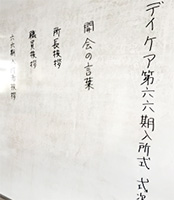 デイケア第六六期入所式 式次
開会の言葉
所長挨拶
職員挨拶
六六期
挨拶